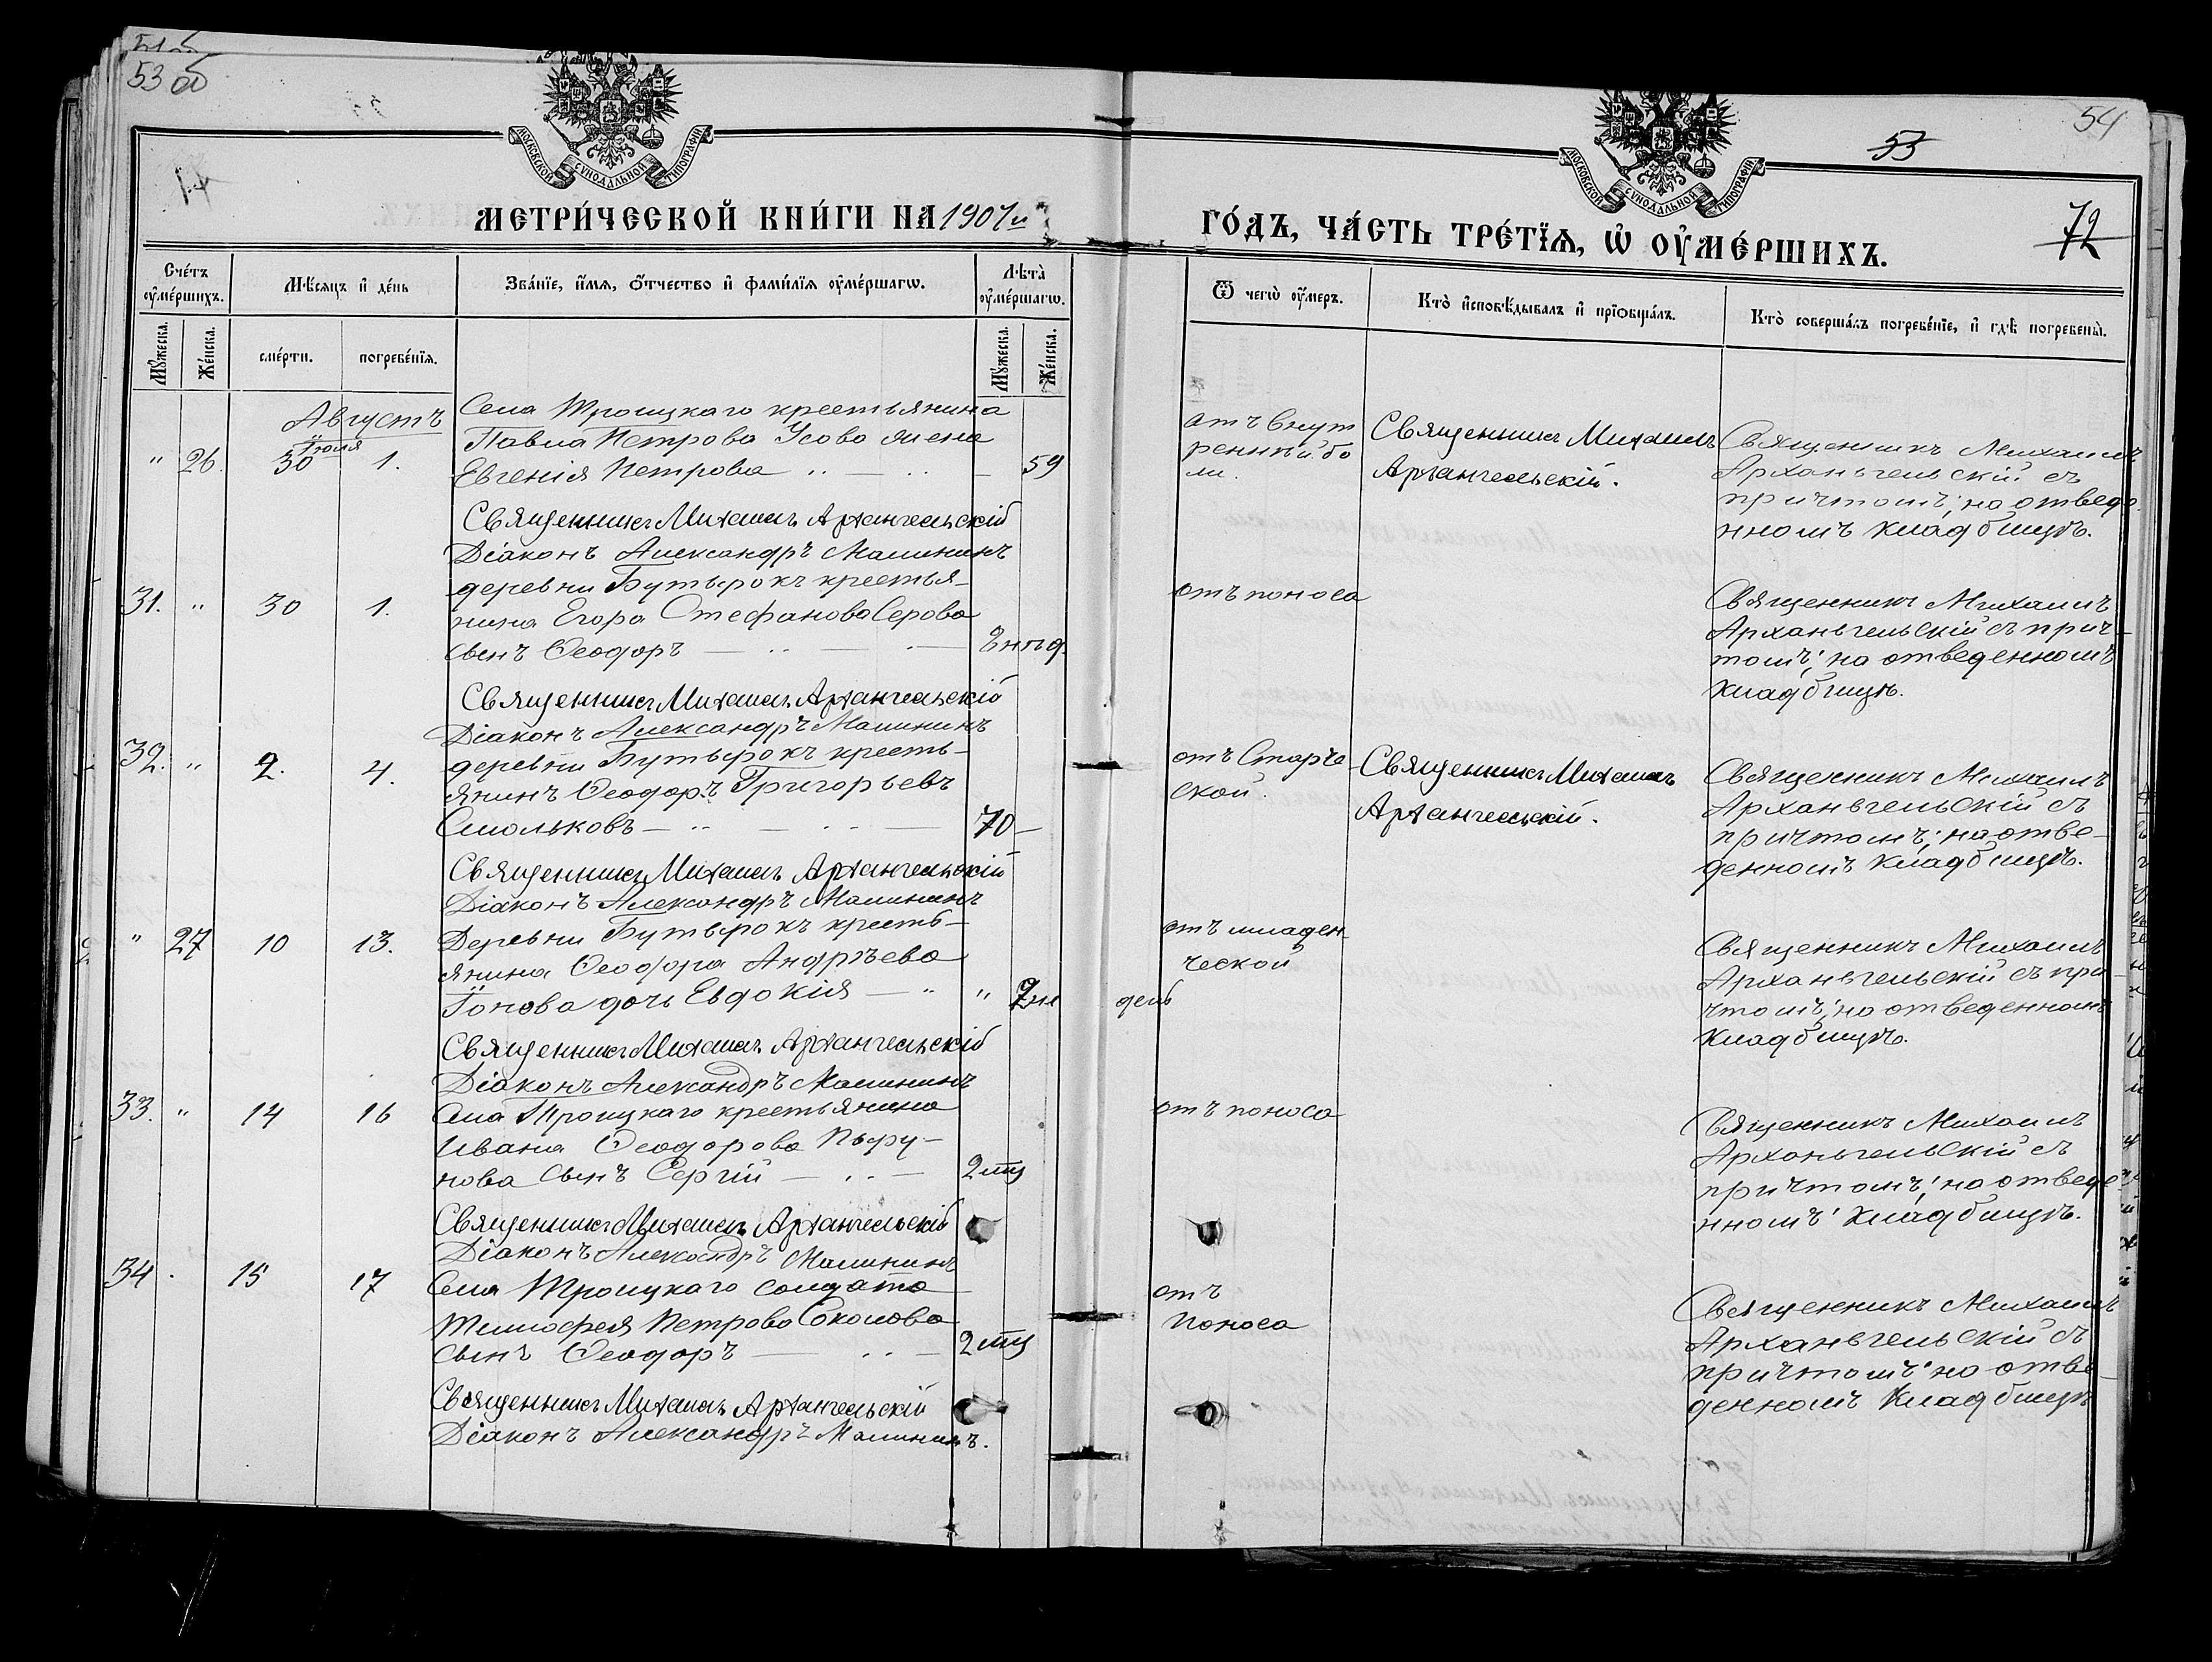 53 об
54
53
72
МОСКОВСКОЙ СѴНОДАЛЬНОЙ ТИПОГРАФІИ
МОСКОВСКОЙ СѴНОДАЛЬНОЙ ТИПОГРАФІИ
МЕТРИ́ЧЕСКОЙ КНИ́ГИ НА 1907 й
ГО́ДЪ, ЧА́СТЬ ТРЕ́ТЇѦ, Ѡ҆ ОУ҆МЕ́РШИХЪ.
Сче́тъ оу҆ме́ршихъ.
Мѣ́сѧцъ и҆ де́нь
Зва́нїе, и҆́мѧ, ѻ҆́тчество и҆ фами́лїѧ оу҆ме́ршагѡ.
Лѣ́та̀ оу҆ме́ршагѡ.
Ѿ чегѡ̀ оу҆́меръ.
Кто̀ и҆сповѣ́дывалъ и҆ прїѡбща́лъ.
Кто̀ соверша́лъ погребе́нїе, и҆ гдѣ̀ погребены̀.
Мꙋ́жеска.
Же́нска.
сме́рти.
погребе́нїѧ.
Мꙋ́жеска.
Же́нска.
Августъ
Іюля
" 26. 30 1.
Села Троицкаго крестьянина
Павла Петрова Усова жена
Евгенія Петрова — 59
отъ внут
ренней бо
ли.
Священникъ Михаилъ
Архангельскій.
Священникъ Михаилъ
Арханьгельскій съ
причтомъ; на отведе
нномъ кладбищѣ.
Священникъ Михаилъ Архангельскій
Діаконъ Александръ Малининъ
31. " 30 1.
деревни Бутырокъ крестья-
нина Егора Стефанова Серова
сынъ Ѳеодоръ — 2 нед.
отъ поноса
Священникъ Михаилъ
Арханьгельскій съ прич-
томъ; на отведенномъ
кладбищѣ.
Священникъ Михаилъ Архангельскій
Діаконъ Александръ Малининъ
32. " 2. 4.
деревни Бутырокъ кресть-
янинъ Ѳеодоръ Григорьевъ
Смольковъ — 70 —
отъ Старче-
ской.
Священникъ Михаилъ
Архангельскій.
Священникъ Михаилъ
Арханьгельскій съ
причтомъ; на отве-
денномъ кладбищѣ.
Священникъ Михаилъ Архангельскій
Діаконъ Александръ Малининъ
" 27 10 13.
Деревни Бутырокъ кресть-
янина Ѳеодора Андреева
дочь Евдокія — " "
отъ младен-
ческой
Священникъ Михаилъ
Арханьгельскій съ при-
чтомъ; на отведенномъ
кладбищѣ.
Священникъ Михаилъ Архангельскій
Діаконъ Александръ Малининъ
33. " 14 16
Села Троицкаго крестьянина
Ивана Ѳеодорова Перу-
нова сынъ Сергій — 2 мц
отъ поноса
Священникъ Михаилъ
Арханьгельскій съ
причтомъ; на отведе
нномъ кладбищѣ.
Священникъ Михаилъ Архангельскій
Діаконъ Александръ Малининъ
34 . 15 17
Села Троицкаго солдата
Тимофея Петрова Соколова
сынъ Ѳеодоръ — 2 мц
отъ
поноса
Священникъ Михаилъ
Арханьгельскій съ
причтомъ; на отве-
денномъ кладбищѣ
Священникъ Михаилъ Архангельскій
Діаконъ Александръ Малининъ.